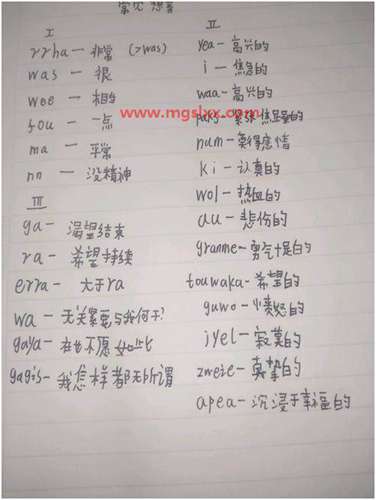 常见 想音
I
rrha — 非常 (>was)
was — 很
wee — 相当
fou — 一点
ma — 平常
nn — 没精神
III
ga — 渴望结束
ra — 希望持续
erra — 大于ra
wa — 无关紧要与我何干?
gaya — 在也不愿如此
gagis — 我怎样都无所谓
II
yea — 高兴的
i — 焦急的
waa — 高兴的
www.mgslxx.com
num — 莫得感情
ki — 认真的
wol — 热血的
au — 悲伤的
granme — 勇气十足的
touwaka — 希望的
guwo — 愤怒的
iyel — 寂寞的
zweie — 真挚的
apea — 沉浸于幸福的